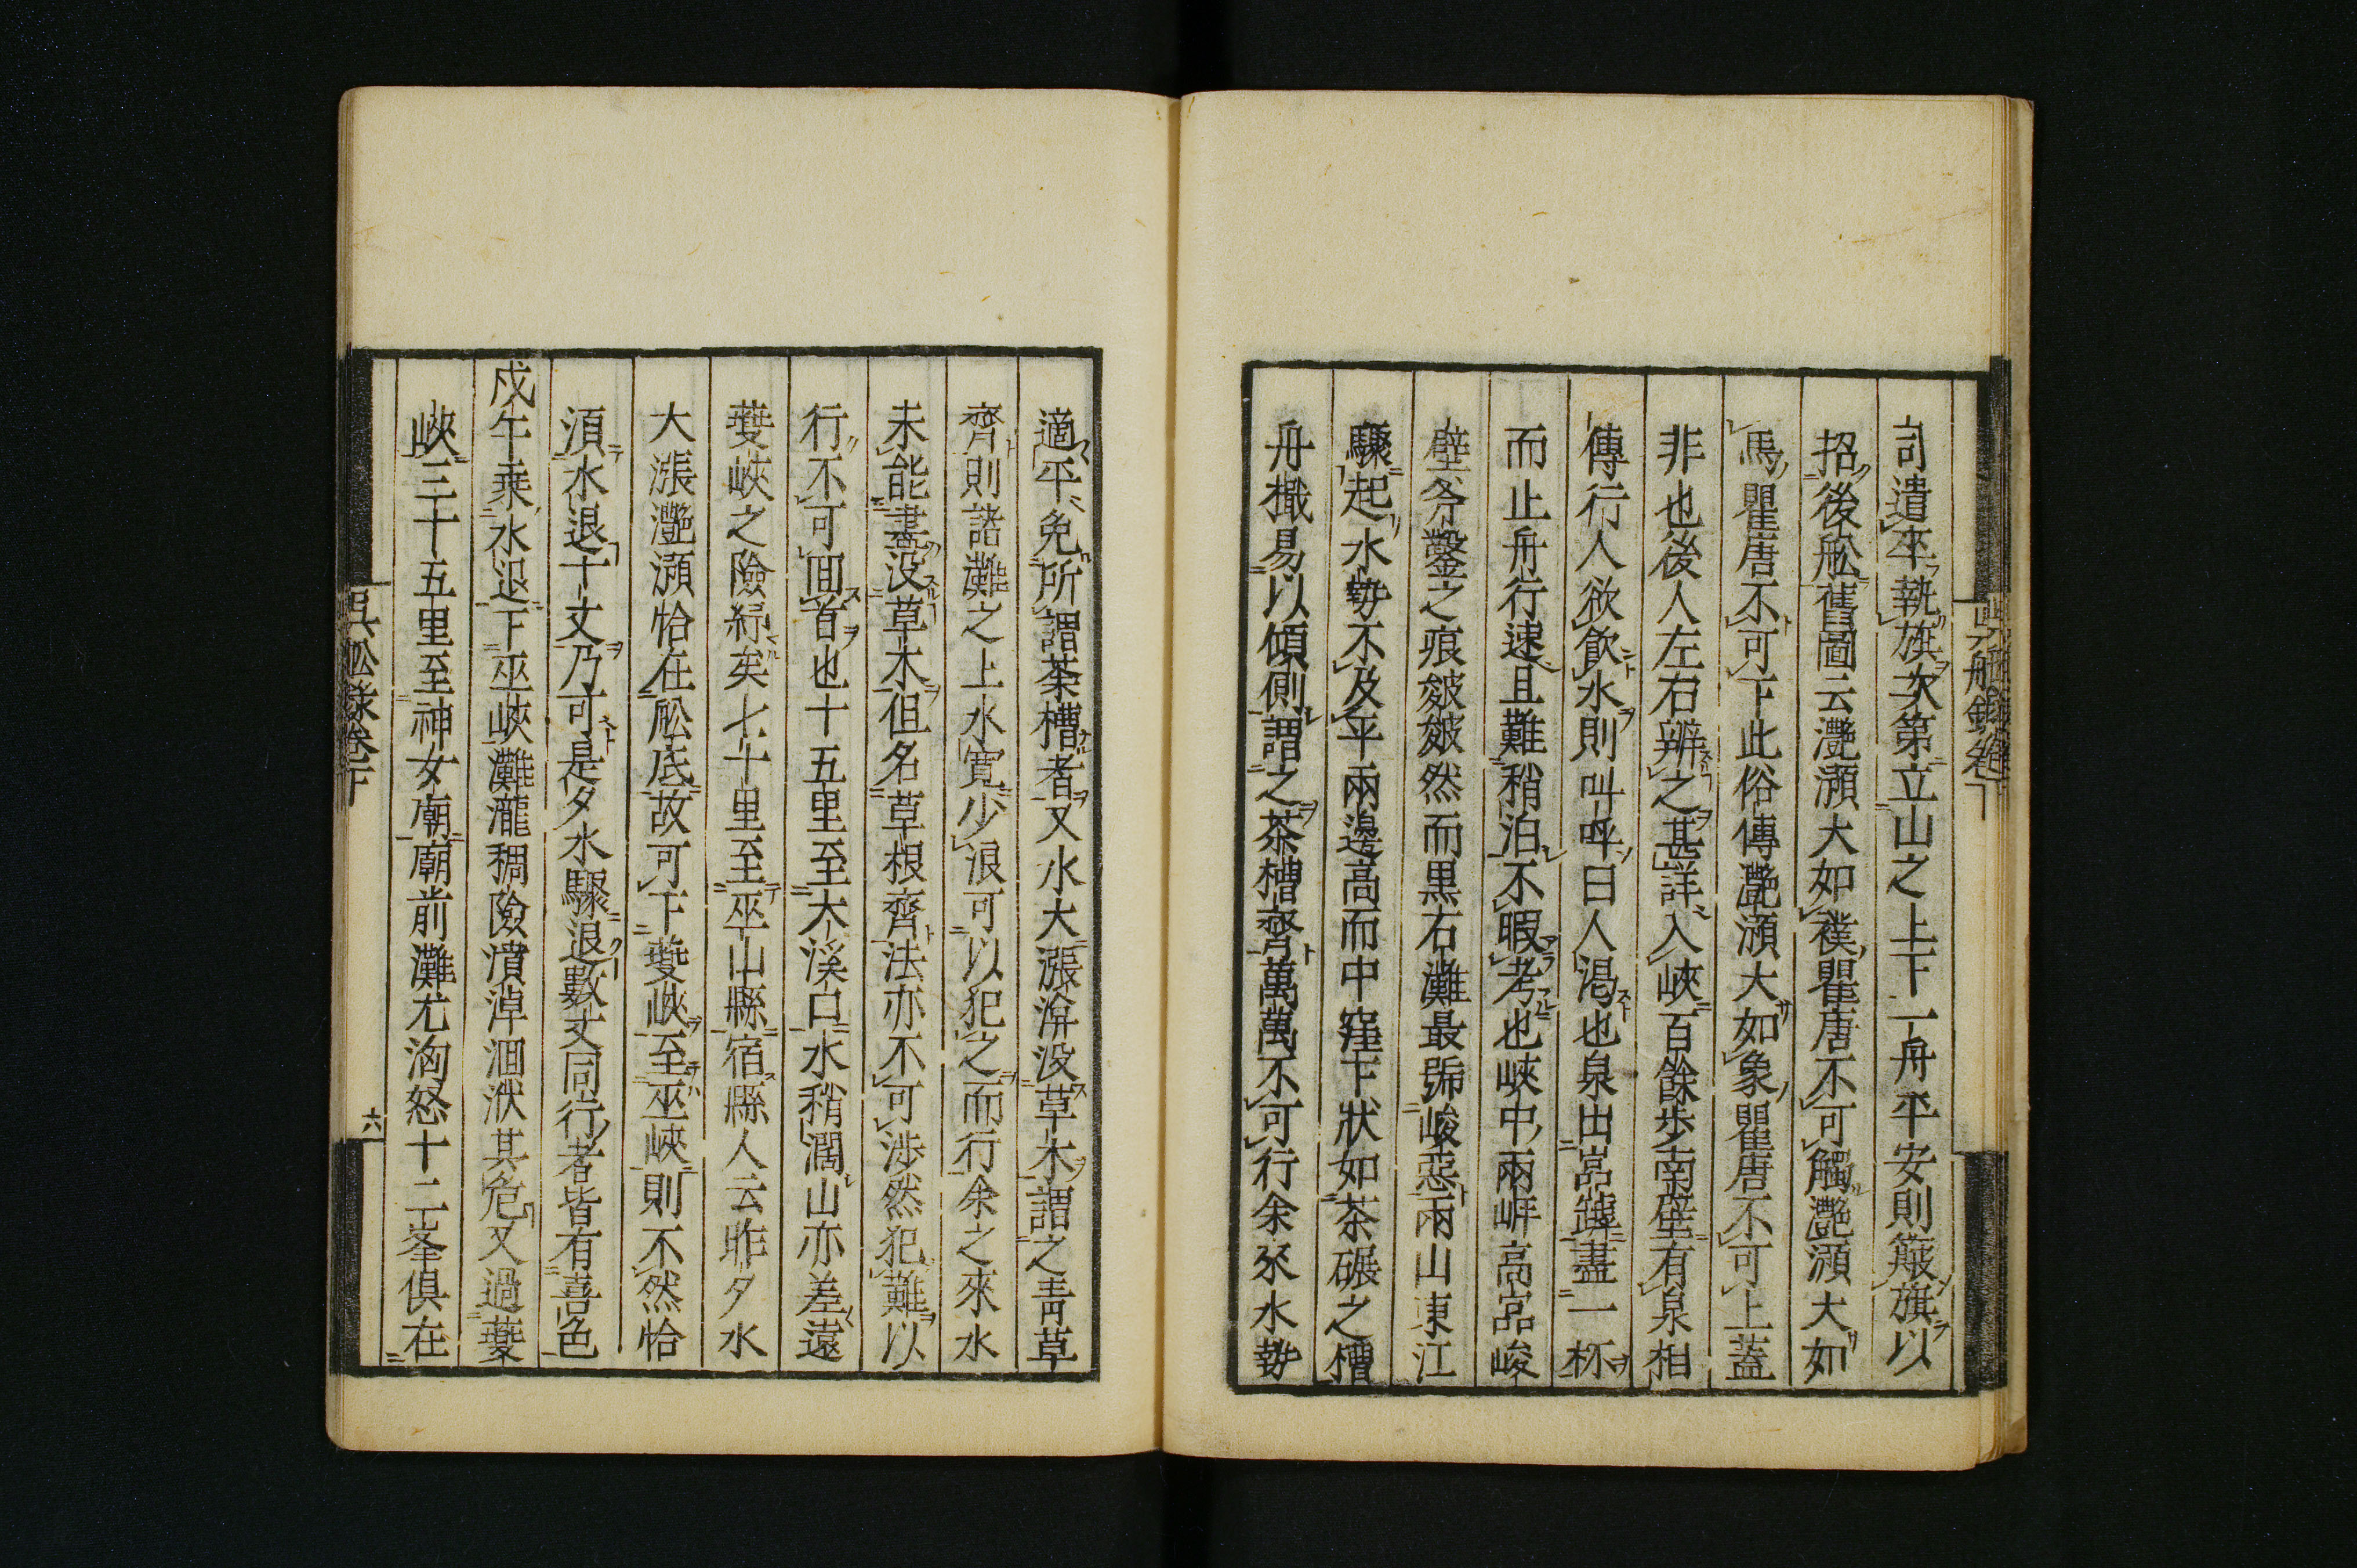 司遣卒執旗次第立山之上下一舟平安則簸旗以
招後舩舊圖云灔澦大如襆瞿唐不可觸灔澦大如
馬瞿唐不可下此俗傳灔澦大如象瞿唐不可上蓋
非也後人左右辨之甚詳入峽百餘步南壁有泉相
傳行人欲飲水則叫呼曰人渴也泉出嵓罅盡一杯
而止舟行速且難稍泊不暇考也峽中兩岸高嵓峻
壁斧鑿之痕皴皴然而黒石灘最號峻惡兩山東江
驟起水勢不及平兩邊高而中窪下狀如茶碾之槽
舟檝易以傾側謂之茶槽齊萬萬不可行余來水勢
適平免所謂茶槽者又水大漲渰没草木謂之靑草
齊則諸灘之上水寛少浪可以犯之而行余之來水
未能盡没草木但名草根齊法亦不可涉然犯難以
行不可囬首也十五里至大溪口水稍濶山亦差遠
夔峽之險紓矣七十里至巫山縣宿縣人云昨夕水
大漲灔澦恰在舩底故可下夔峽至巫峽則不然恰
須水退十丈乃可是夕水驟退數丈同行者皆有喜色
戊午乗水退下巫峽灘瀧稠險濆淖洄洑其危又過夔
峽三十五里至神女廟廟前灘尤洶怒十二峯俱在
吳舩錄卷下
六